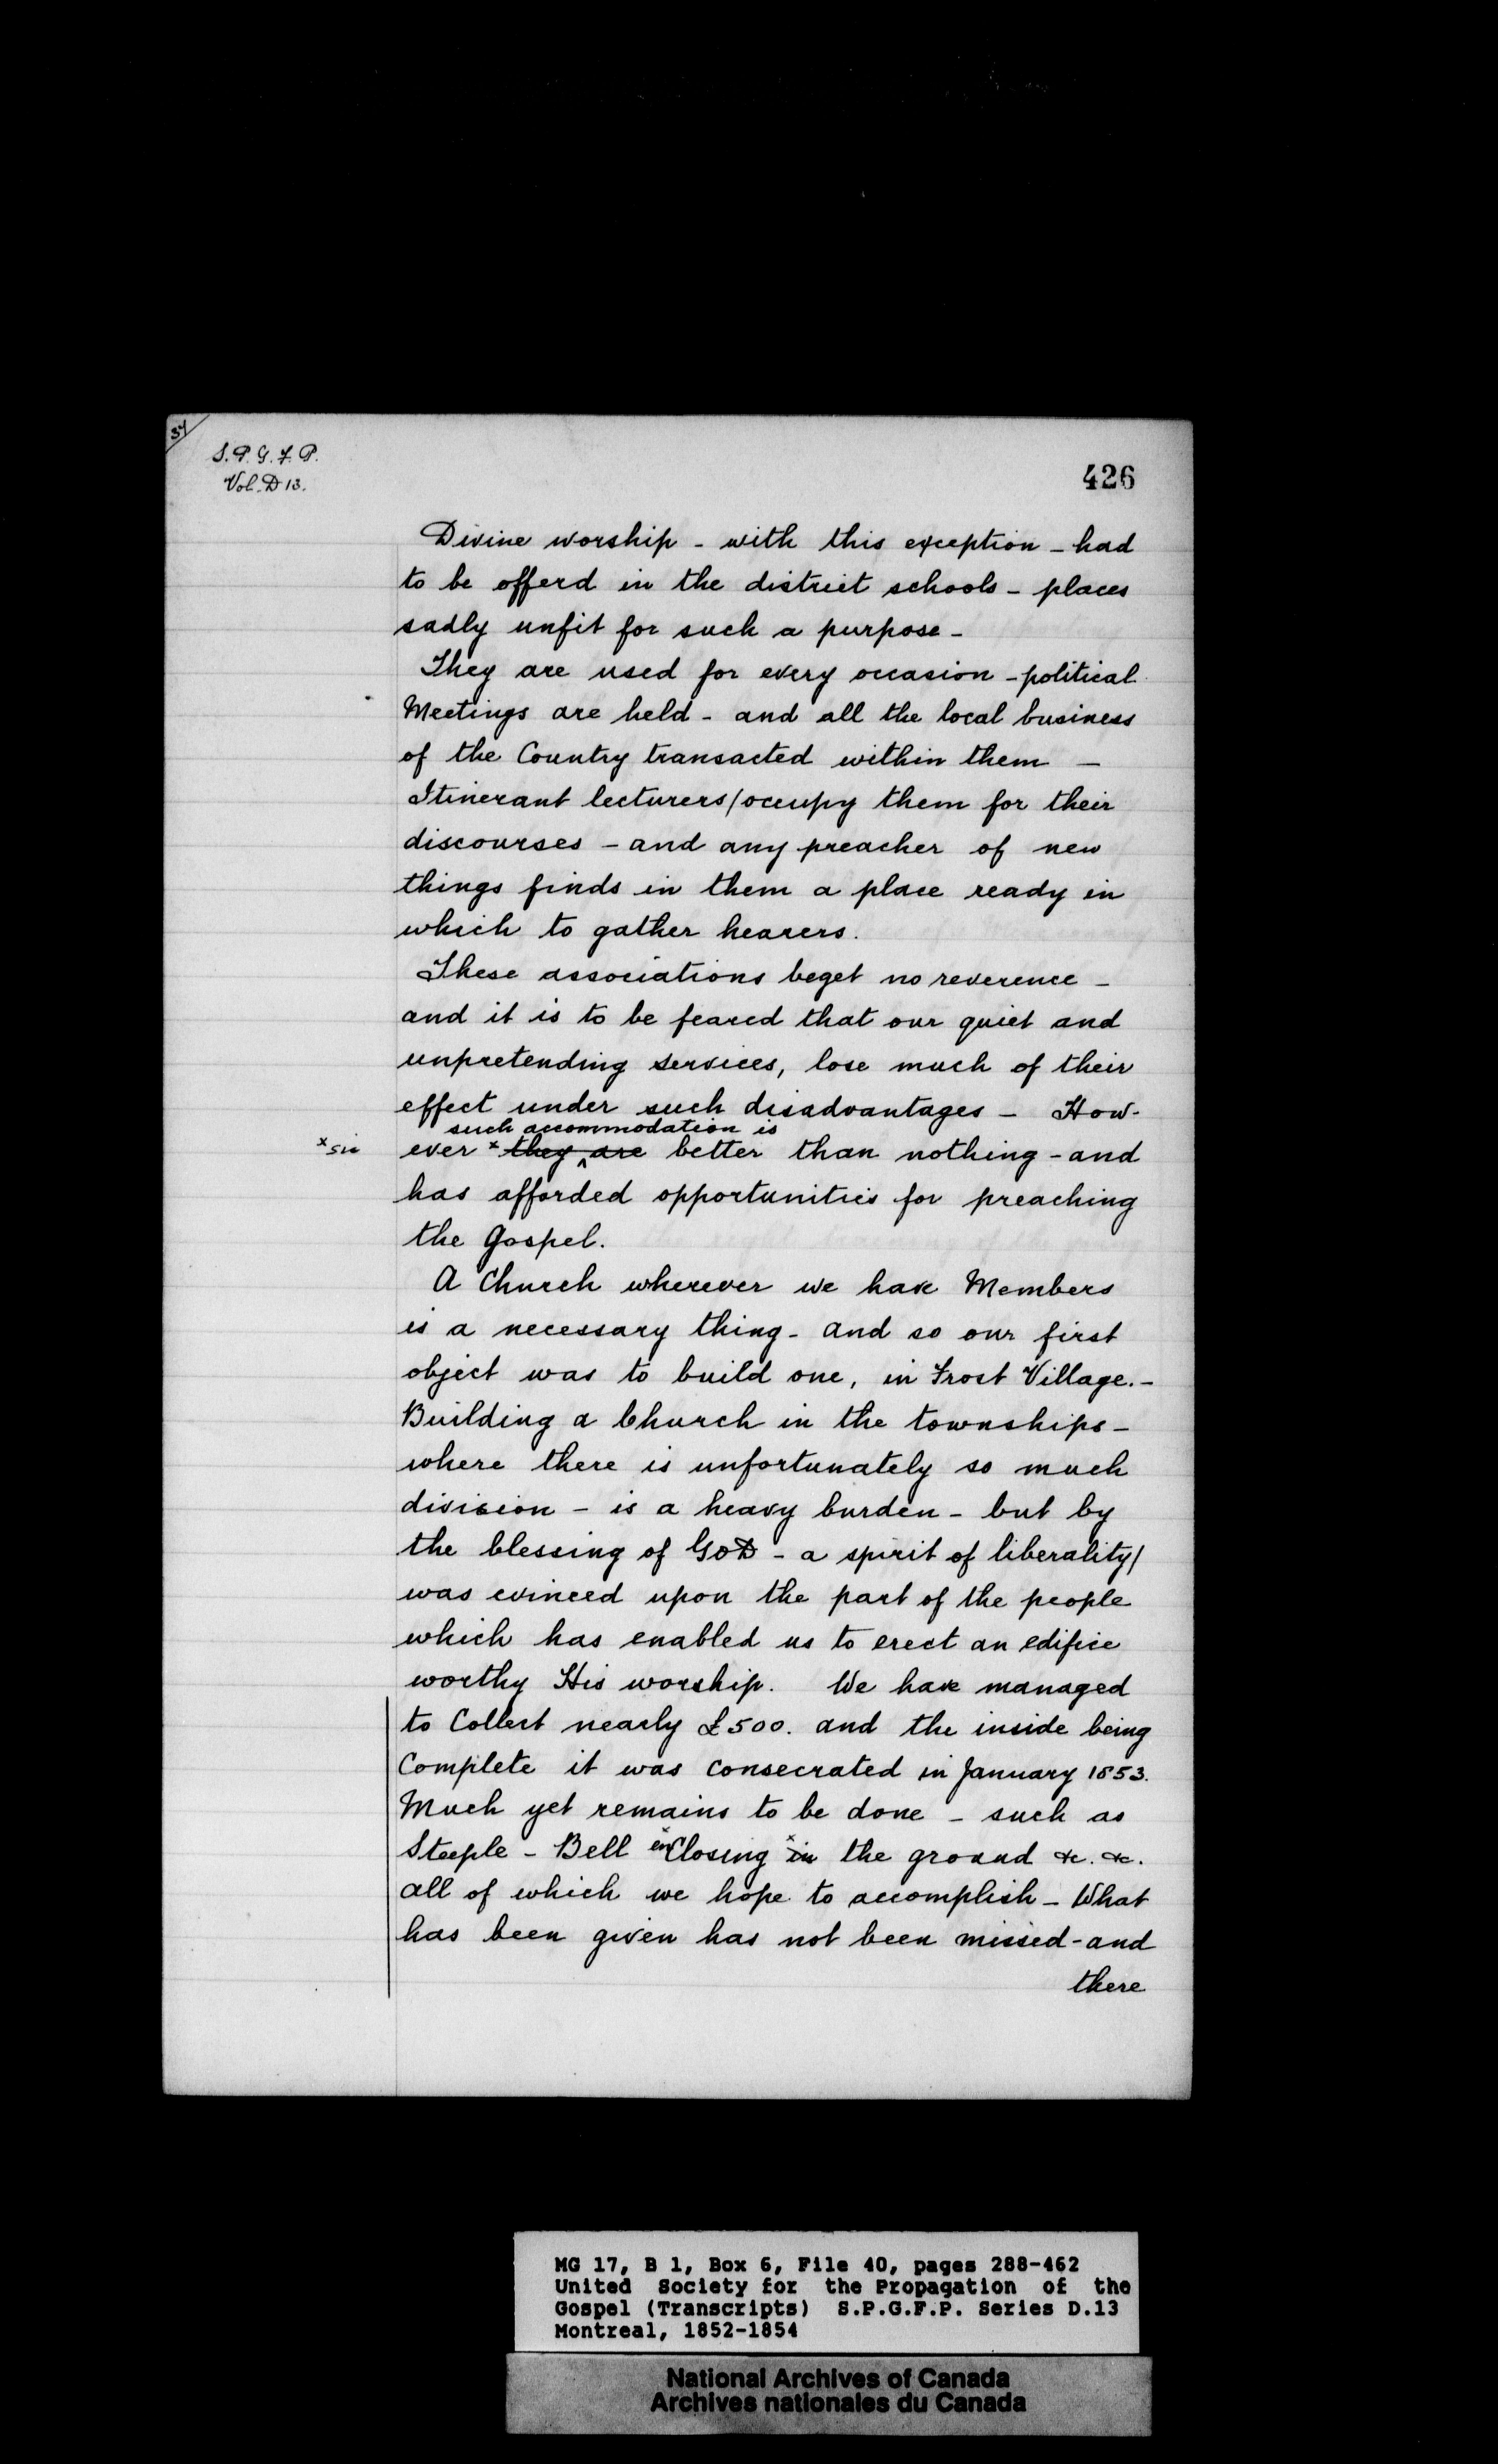 34
S.P.G.F.P.
Vol. D 13.
426
Divine worship - with this exception - had
to be offerd in the district schools - places
sadly unfit for such a purpose -
They are used for every occasion - political
Meetings are held - and all the local business
of the Country transacted within them -
Itinerant lecturers/occupy them for their
discourses - and any preacher of new
things finds in them a place ready in
which to gather hearers.
These associations beget no reverence -
and it is to be feared that our quiet and
unpretending services, lose much of their
effect under such disadvantages - How-
such accommodation is
x sic
ever x they are better than nothing - and
has afforded opportunities for preaching
the Gospel.
A Church wherever we have Members
is a necessary thing - and so our first
object was to build one, in Frost Village. -
Building a Church in the townships -
where there is unfortunately so much
division - is a heavy burden - but by
the blessing of GOD - a spirit of liberality/
was evinced upon the part of the people
which has enabled us to erect an edifice
worthy His worship. We have managed
to Collect nearly £500. and the inside being
Complete it was consecrated in January 1853.
Much yet remains to be done - such as
Steeple - Bell enClosing x in the ground &c. &c.
all of which we hope to accomplish - What
has been given has not been missed - and
there
MG 17, B 1, Box 6, File 40, pages 288-462
United Society for the Propagation of the
Gospel (Transcripts) S.P.G.F.P. Series D.13
Montreal, 1852-1854
National Archives of Canada
Archives nationales du Canada